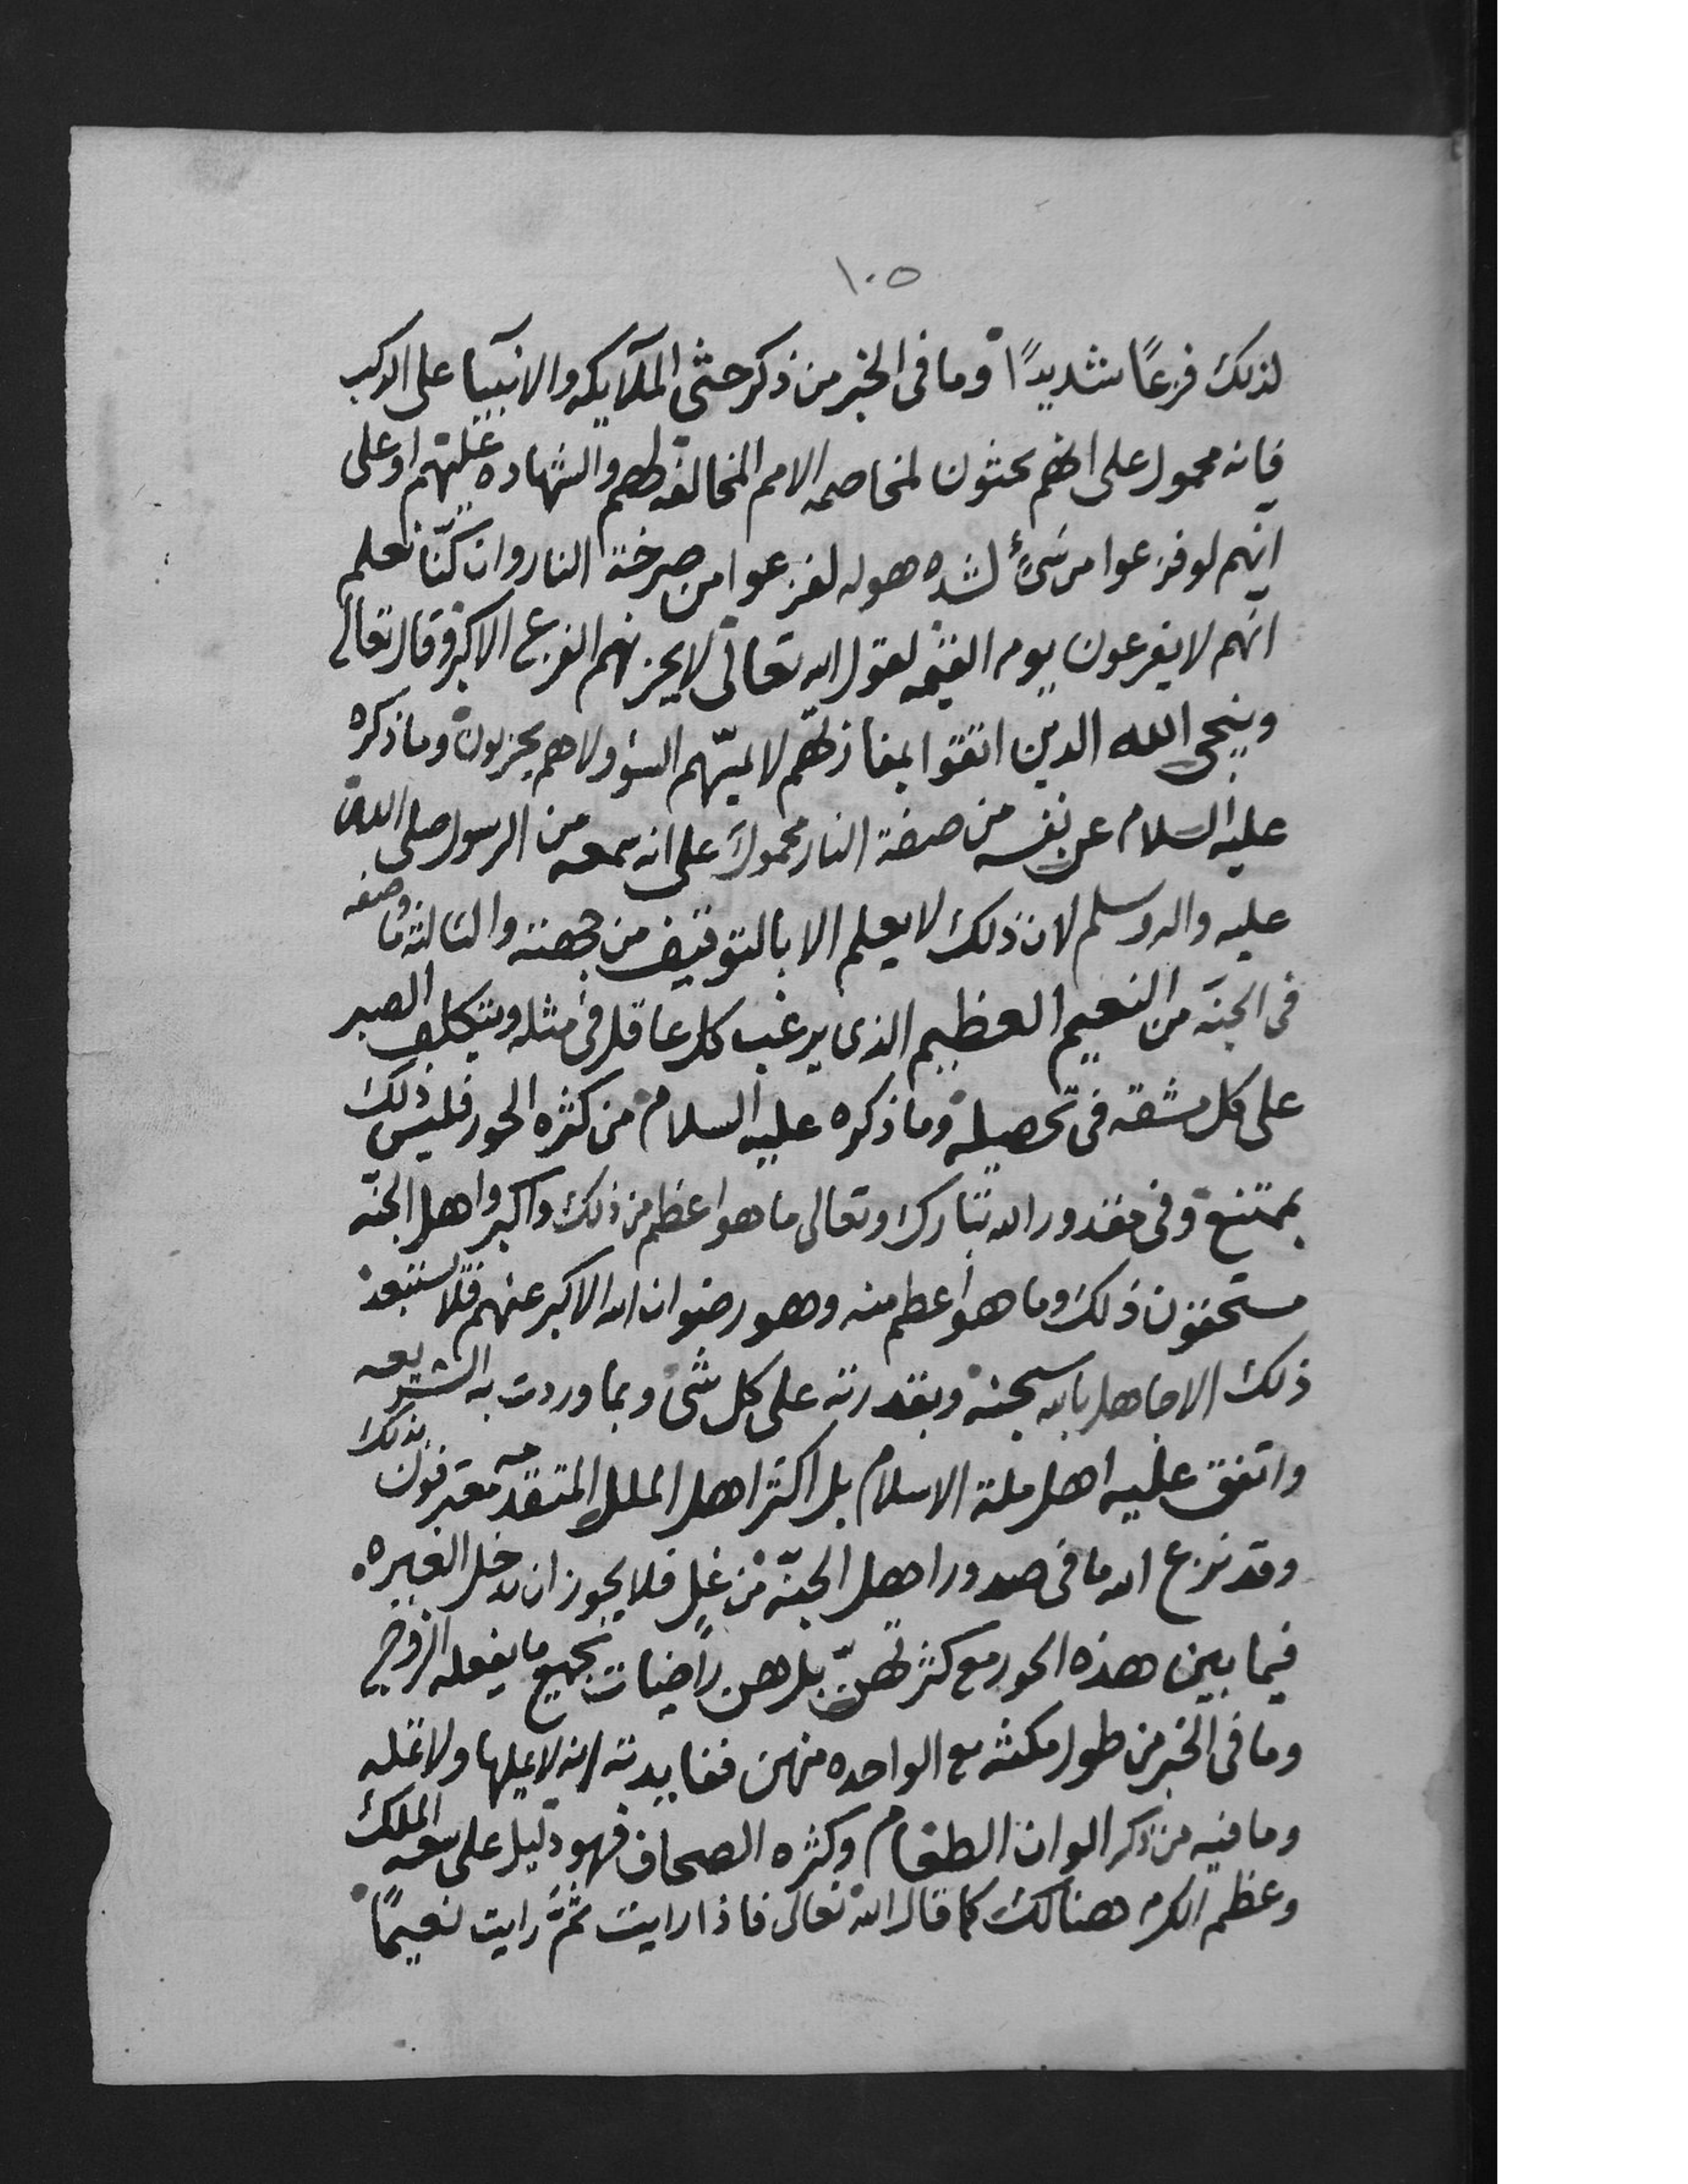 ١٠٥
لذلك فزعًا شديدًا وما فى الخبر من ذكر جثى الملآيكه والانبيآ على الركب
فانه محمول على انهم يجثون لمخاصمه الامم المخالفه لهم والشهاده عليهم او على
انهم لو فزعوا من شىء لشده هوله لفزعوا من صرخة النار وان كنّا نعلم
انهم لا يفزعون يوم القيمه لقول الله تعالى لا يحزنهم الفزع الاكبر وقال تعالى
وينجى الله الذين اتقوا بمفازتهم لا يمسّهم السؤ ولا هم يحزنون وما ذكره
عليه السلام عن نفسه من صفة النار محمول على انه سمعه من الرسول صلى الله
عليه واله وسلم لان ذلك لا يعلم الا بالتوقيف من جهته والثالثه ما وصفه
فى الجنّه من النعيم العظيم الذى يرغب كل عاقل فى مثله ويتكلف الصبر
على كل مشقه فى تحصيله وما ذكره عليه السلام من كثره الحور فليس ذلك
بممتنع وفى مقدور الله تبارك وتعالى ما هو اعظم من ذلك واكبر واهل الجنّه
مستحقون ذلك وما هو اعظم منه وهو رضوان الله الاكبر عنهم فلا يستبعد
ذلك الا جاهل بالله سبحنه وبقدرته على كل شى وبما وردت به الشريعه
واتفق عليه اهل ملة الاسلام بل اكثر اهل الملل المتقدمه معترفون بذلك
وقد نزع الله ما فى صدور اهل الجنّه من غل فلا يجوز ان تدخل الغيره
فيما بين هذه الحور مع كثرتهنّ بل هن راضيات بجميع ما يفعله الزوج
وما فى الخبر من طول مكثه مع الواحده منهن ففايدته انه لا يملها ولا تمله
وما فيه من ذكر الوان الطعام وكثره الصحاف فهو دليل على سعه الملك
وعظم الكرم هنالك كما قال الله تعالى فاذا رايت ثمّ رايت نعيمًا